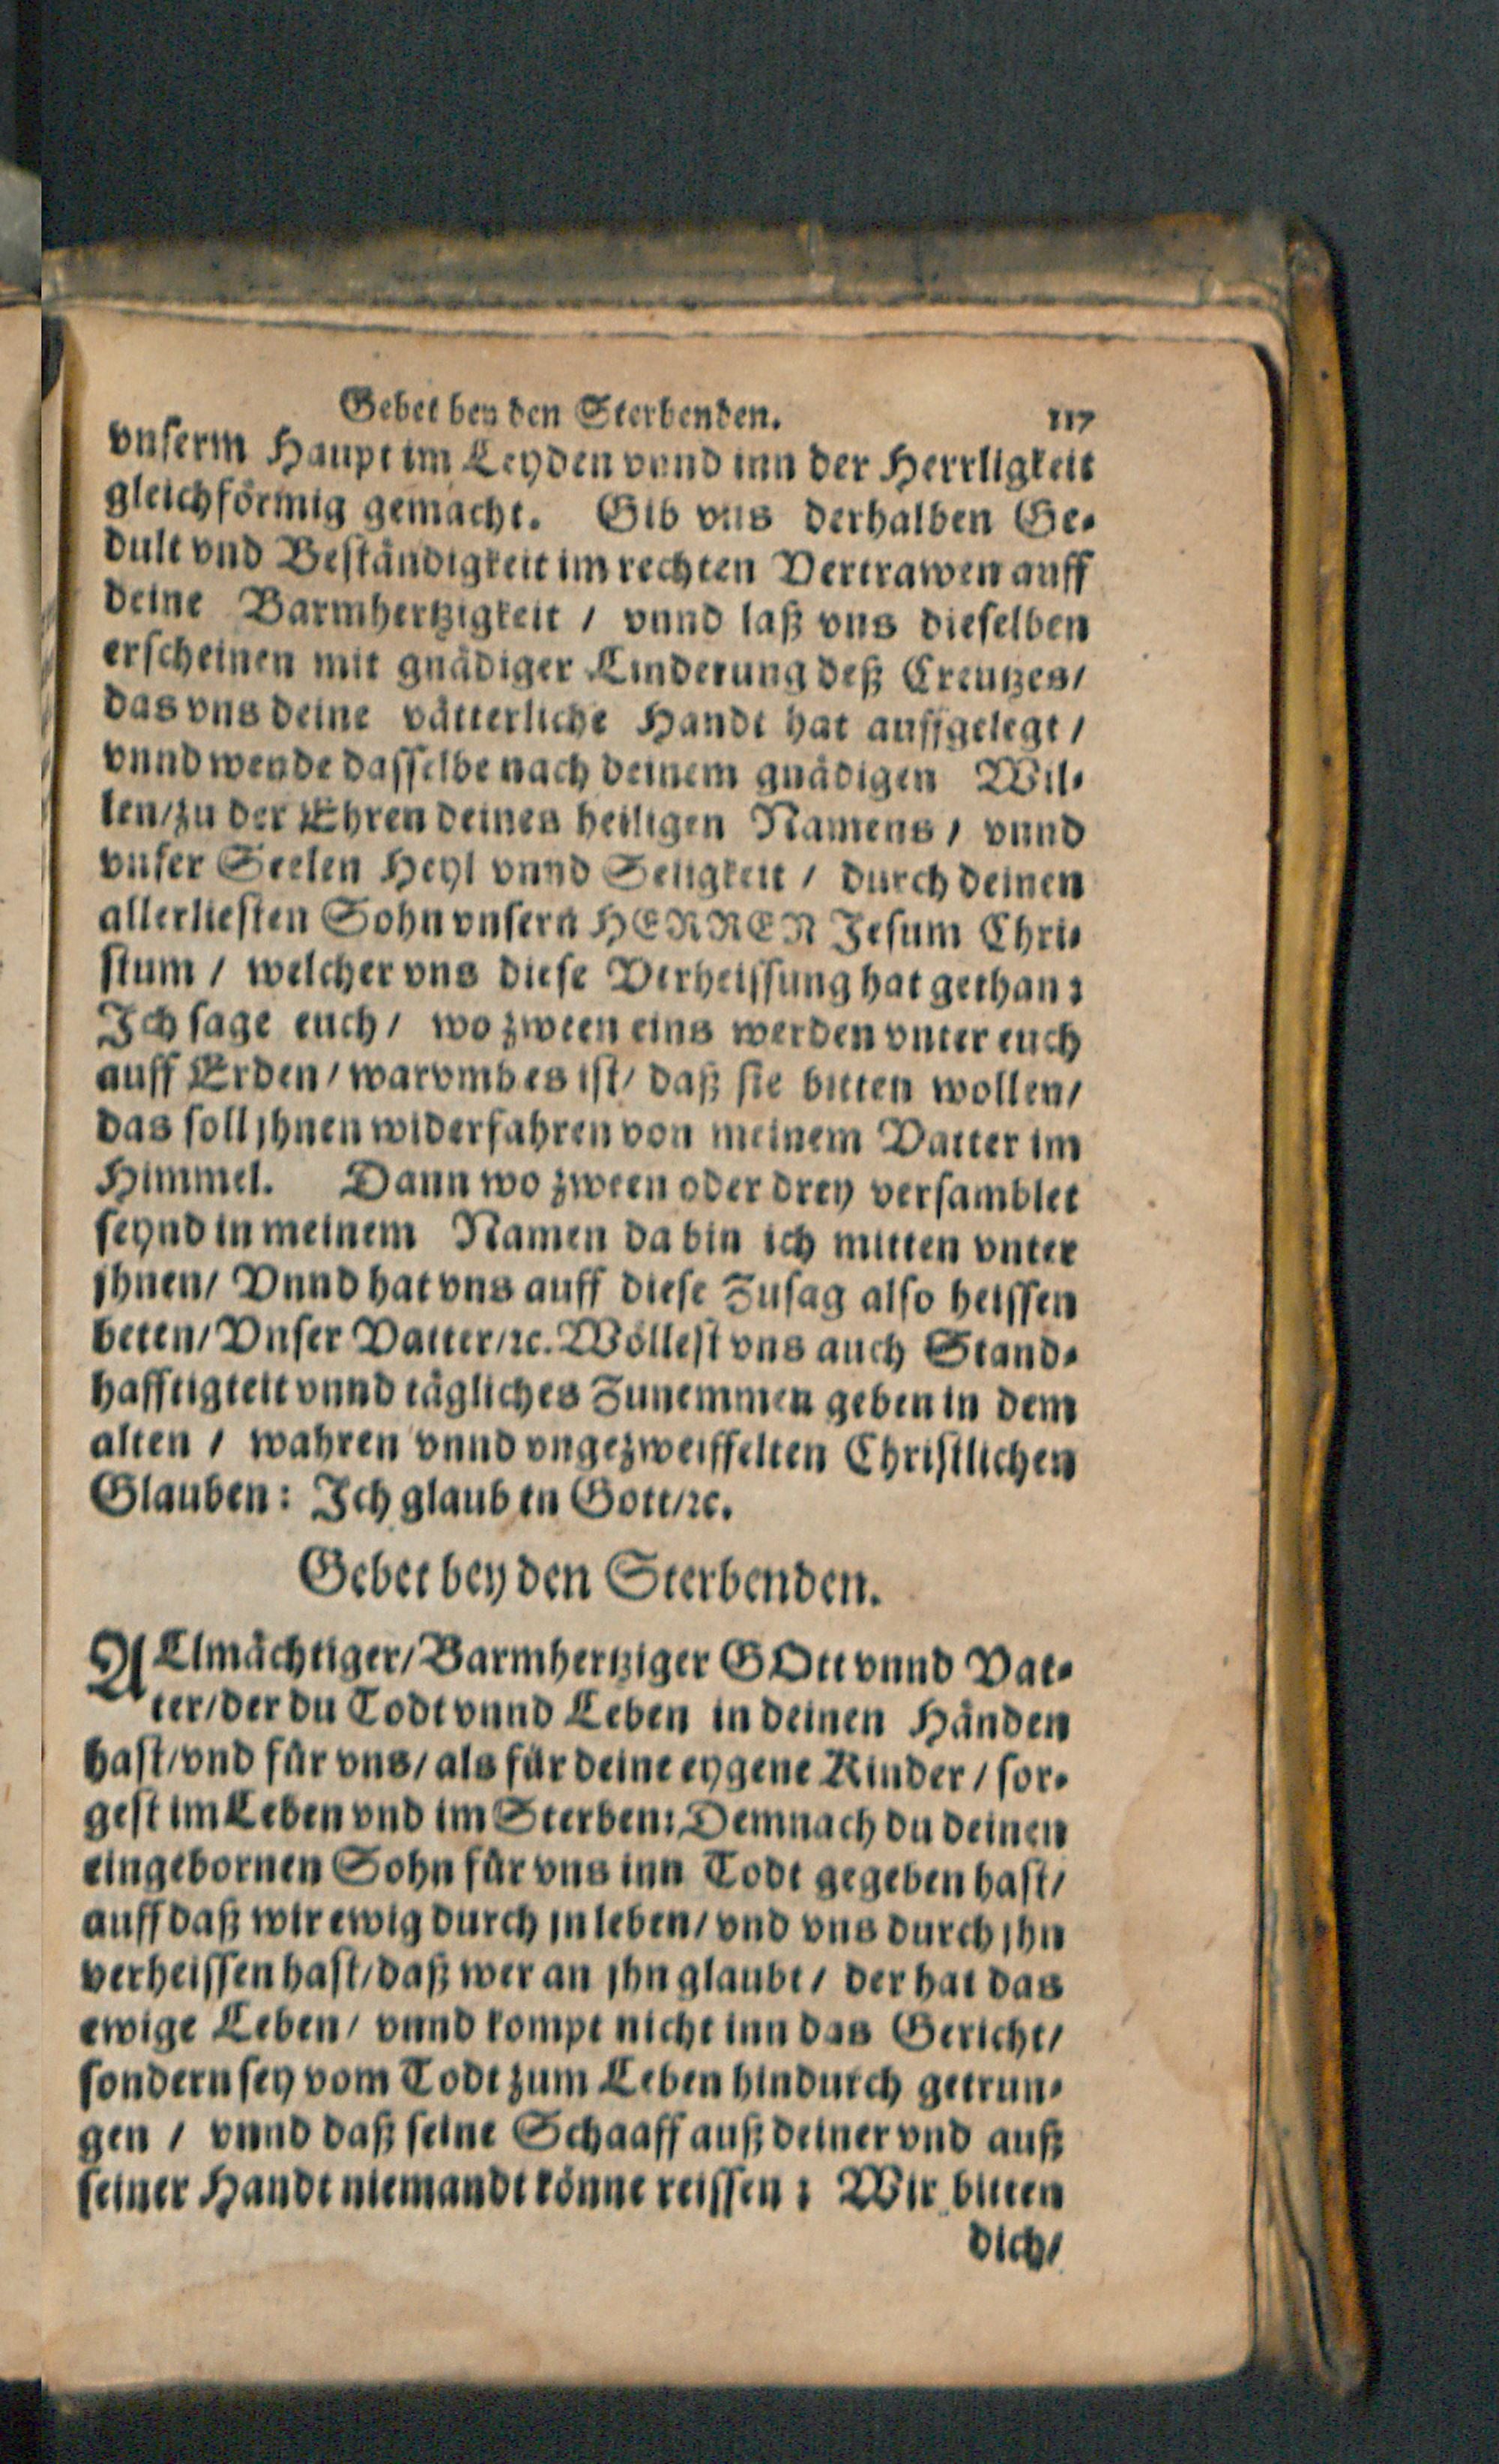 Gebet bey den Sterbenden. 117
vnserm Haupt im Leyden vnnd inn der Herrligkeit
gleichförmig gemacht. Gib vns derhalben Ge-
dult vnd Beständigkeit im rechten Vertrawen auff
deine Barmhertzigkeit / vnnd laß vns dieselben
erscheinen mit gnädiger Linderung deß Creutzes/
das vns deine vätterliche Handt hat auffgelegt /
vnnd wende dasselbe nach deinem gnädigen Wil-
len/zu der Ehren deines heiligen Namens / vnnd
vnser Seelen Heyl vnnd Seligkeit / durch deinen
allerliesten Sohn vnsern HERREN Jesum Chri-
stum / welcher vns diese Verheissung hat gethan:
Ich sage euch / wo zween eins werden vnter euch
auff Erden / warvmb es ist/ daß sie bitten wollen/
das soll jhnen widerfahren von meinem Vatter im
Himmel. Dann wo zween oder drey versamblet
seynd in meinem Namen da bin ich mitten vnter
jhnen/ Vnnd hat vns auff diese Zusag also heissen
beten/ Vnser Vatter/ꝛc. Wöllest vns auch Stand-
hafftigkeit vnnd tägliches Zunemmen geben in dem
alten / wahren vnnd vngezweiffelten Christlichen
Glauben: Ich glaub in Gott/ꝛc.
Gebet bey den Sterbenden.
ALlmächtiger/ Barmhertziger GOtt vnnd Vat-
ter/der du Todt vnnd Leben in deinen Händen
hast/vnd für vns/ als für deine eygene Kinder / sor-
gest im Leben vnd im Sterben: Demnach du deinen
eingebornen Sohn für vns inn Todt gegeben hast/
auff daß wir ewig durch jn leben/ vnd vns durch jhn
verheissen hast/daß wer an jhn glaubt / der hat das
ewige Leben / vnnd kompt nicht inn das Gericht/
sondern sey vom Todt zum Leben hindurch getrun-
gen / vnnd daß seine Schaaff auß deiner vnd auß
seiner Handt niemandt könne reissen: Wir bitten
dich/